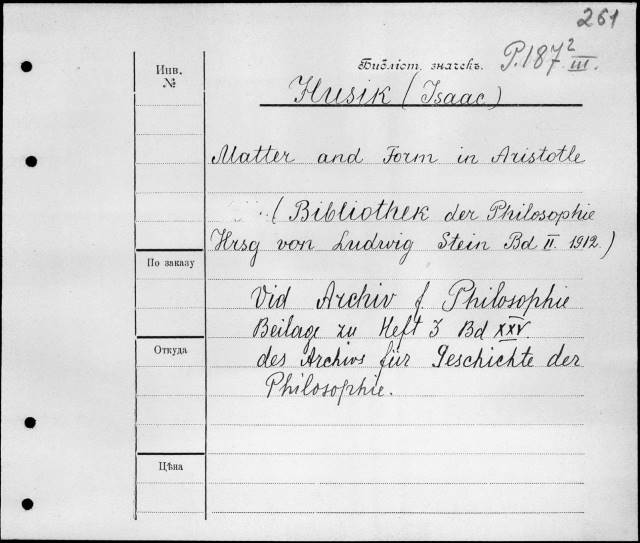 261
Инв.
№
Библіот. значекъ. P.187 2/III.
Husik (Isaac)
Matter and Form in Aristotle
(Bibliothek der Philosophie
Hrsg von Ludwig Stein Bd II. 1912.)
По заказу
Vid Archiv f. Philosophie
Beilage zu Heft 3 Bd XXV.
Откуда
des Archivs für Geschichte der
Philosophie.
Цѣна